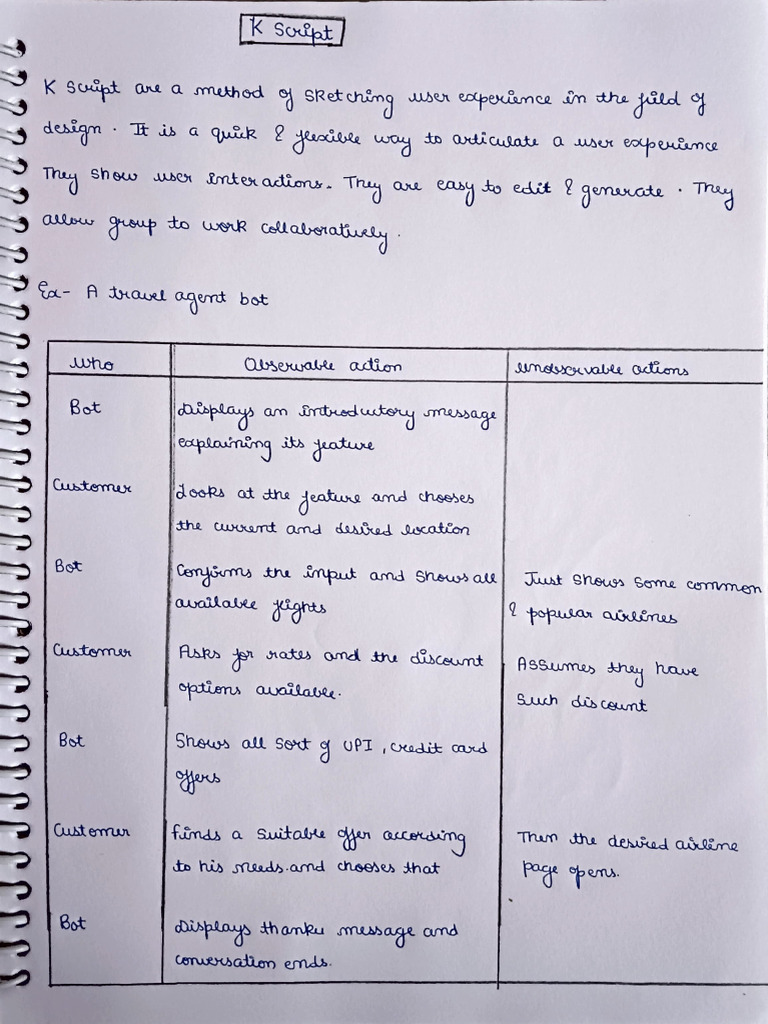 K Script
K Script are a method of sketching user experience in the field of
design. It is a quick & flexible way to articulate a user experience
They show user interactions. They are easy to edit & generate. They
allow group to work collaboratively.
Ex- A travel agent bot
Who Observable action Unobservable actions
Bot Displays an introductory message
explaining its feature
Customer Looks at the feature and chooses
the current and desired location
Bot Confirms the input and shows all Just shows some common
available flights & popular airlines
Customer Asks for rates and the discount Assumes they have
options available. such discount
Bot Shows all sort of UPI, credit card
offers
Customer finds a suitable offer according Then the desired airline
to his needs.and chooses that page opens.
Bot Displays thanku message and
conversation ends.